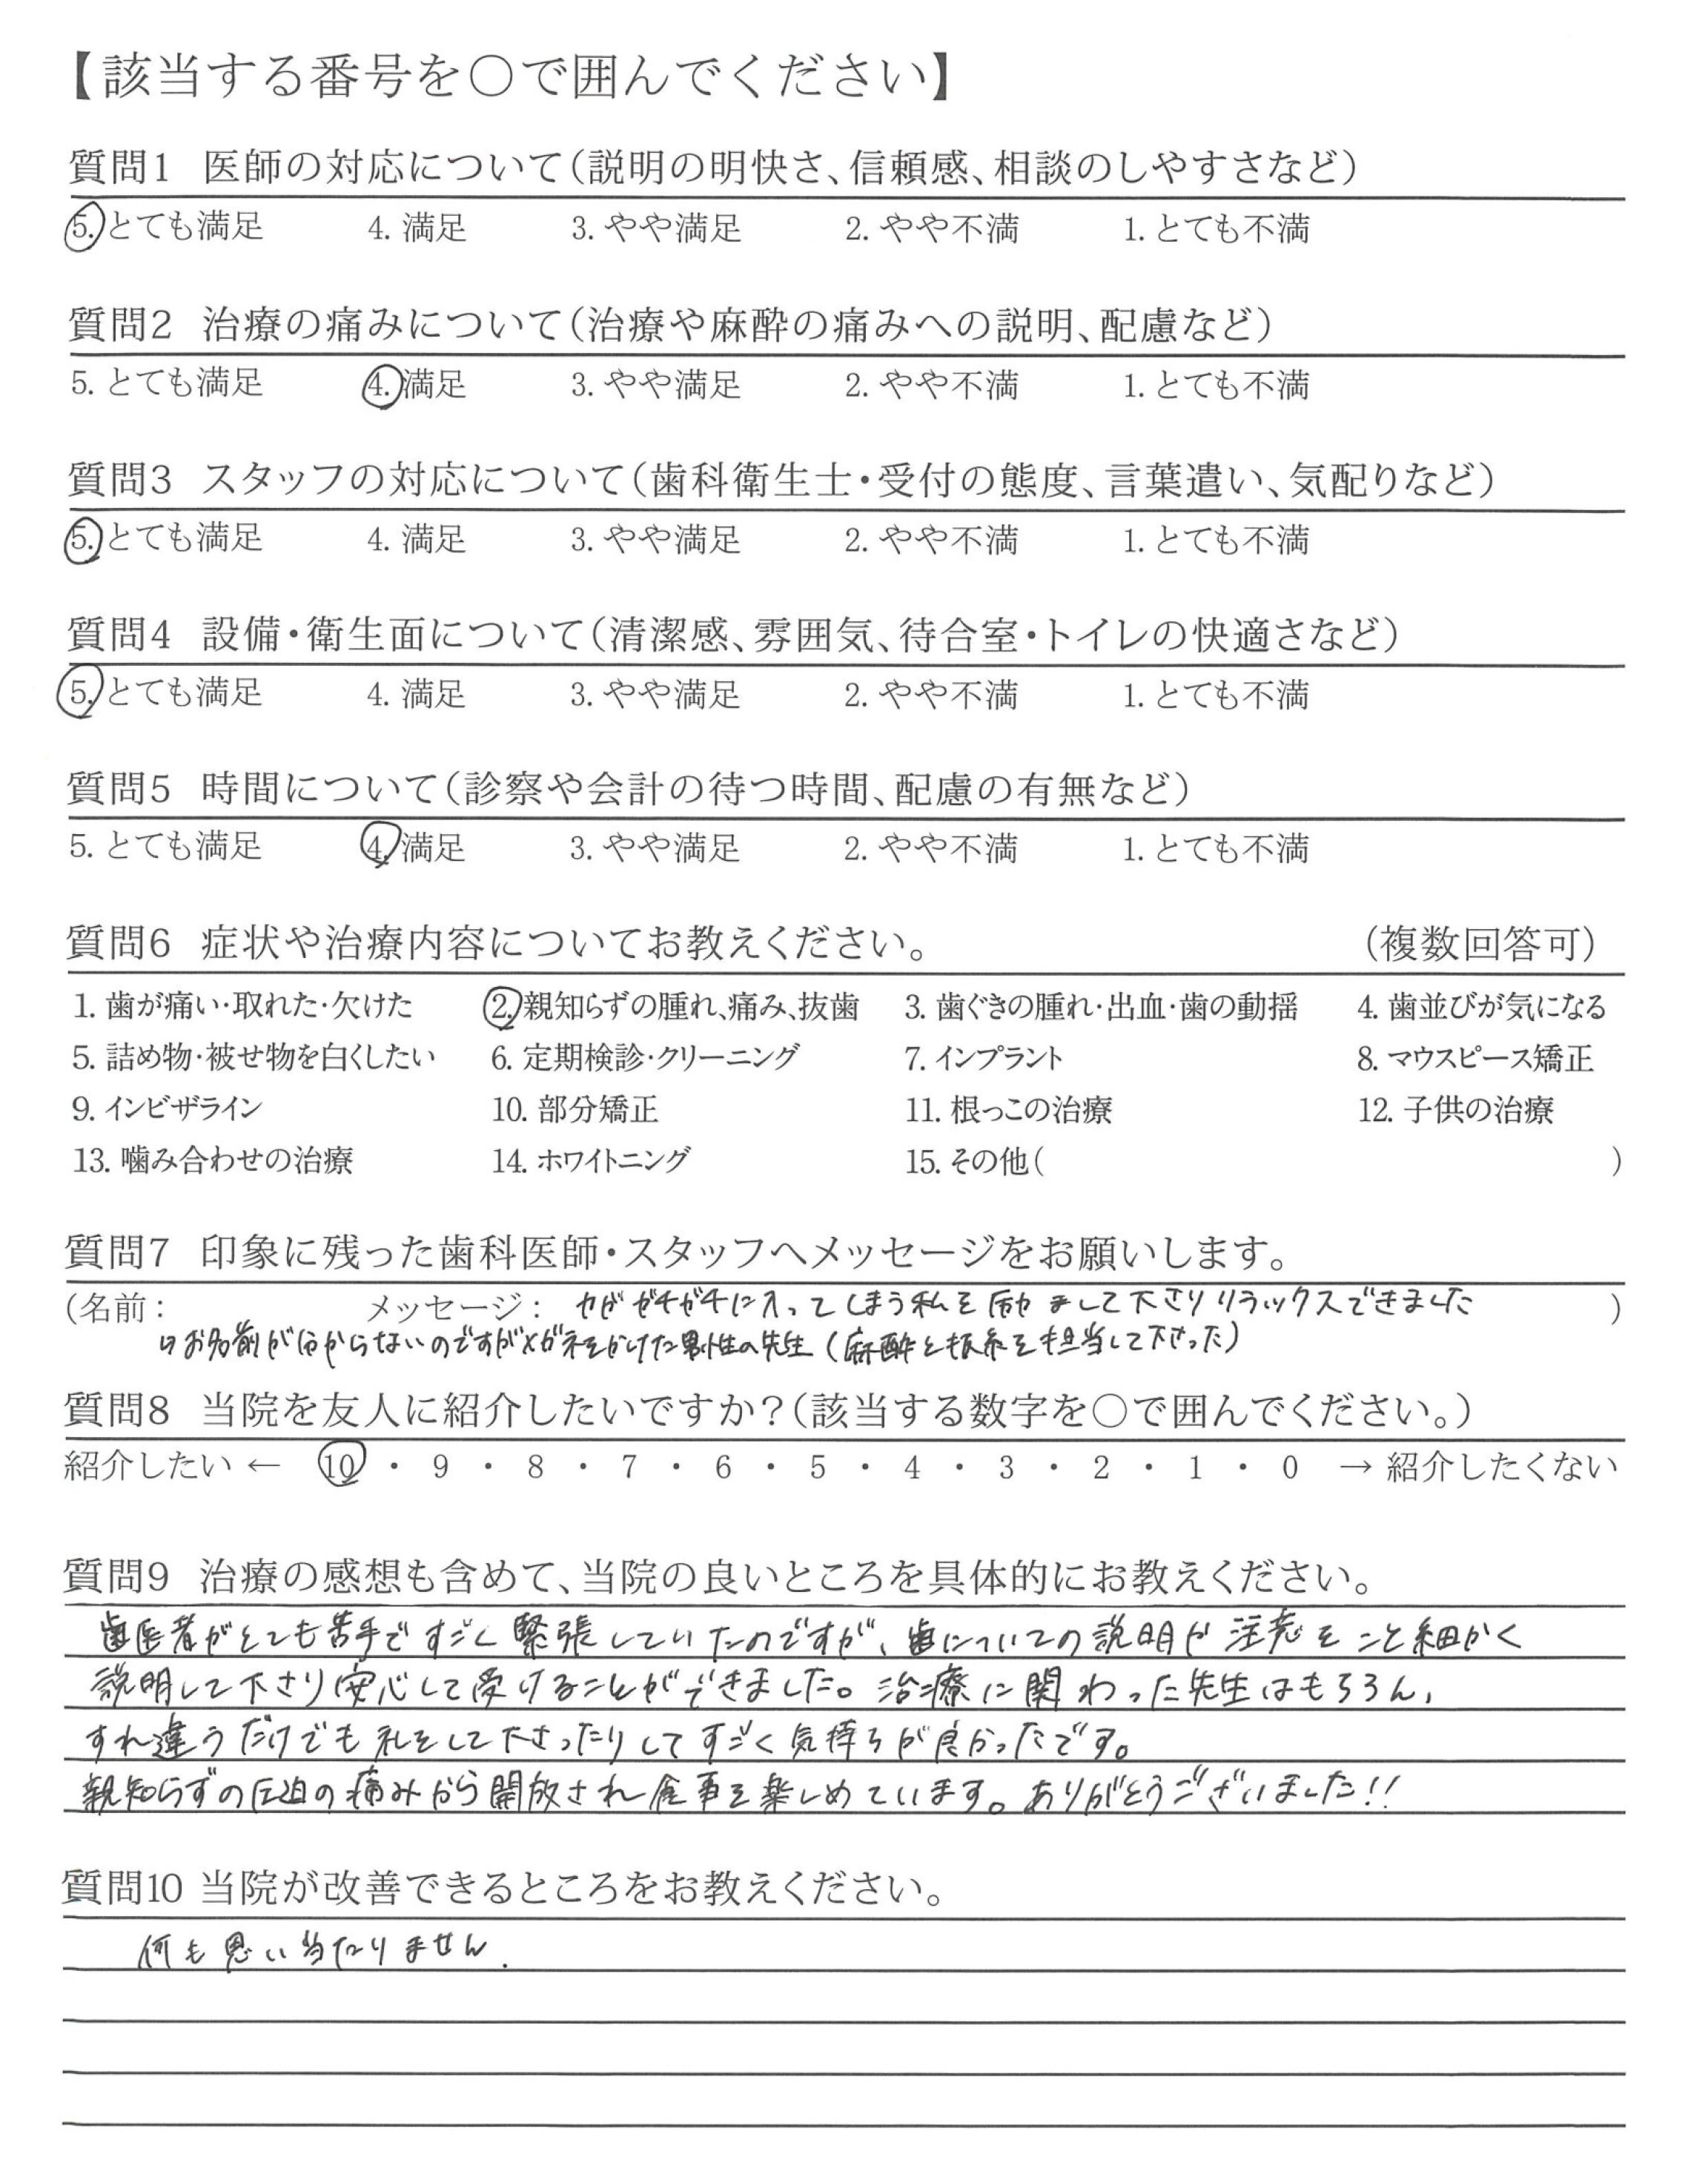 【該当する番号を○で囲んでください】
質問1 医師の対応について(説明の明快さ、信頼感、相談のしやすさなど)
5. とても満足 4. 満足 3. やや満足 2. やや不満 1. とても不満
質問2 治療の痛みについて(治療や麻酔の痛みへの説明、配慮など)
5. とても満足 4. 満足 3. やや満足 2. やや不満 1. とても不満
質問3 スタッフの対応について(歯科衛生士・受付の態度、言葉遣い、気配りなど)
5. とても満足 4. 満足 3. やや満足 2. やや不満 1. とても不満
質問4 設備・衛生面について(清潔感、雰囲気、待合室・トイレの快適さなど)
5. とても満足 4. 満足 3. やや満足 2. やや不満 1. とても不満
質問5 時間について(診察や会計の待つ時間、配慮の有無など)
5. とても満足 4. 満足 3. やや満足 2. やや不満 1. とても不満
質問6 症状や治療内容についてお教えください。 (複数回答可)
1. 歯が痛い・取れた・欠けた 2. 親知らずの腫れ、痛み、抜歯 3. 歯ぐきの腫れ・出血・歯の動揺 4. 歯並びが気になる
5. 詰め物・被せ物を白くしたい 6. 定期検診・クリーニング 7. インプラント 8. マウスピース矯正
9. インビザライン 10. 部分矯正 11. 根っこの治療 12. 子供の治療
13. 噛み合わせの治療 14. ホワイトニング 15. その他( )
質問7 印象に残った歯科医師・スタッフへメッセージをお願いします。
(名前: メッセージ: 力がガチガチに入ってしまう私を励まして下さりリラックスできました )
お名前が分からないのですがメガネをかけた男性の先生(麻酔と抜糸を担当して下さった)
質問8 当院を友人に紹介したいですか?(該当する数字を○で囲んでください。)
紹介したい ← 10 ・ 9 ・ 8 ・ 7 ・ 6 ・ 5 ・ 4 ・ 3 ・ 2 ・ 1 ・ 0 → 紹介したくない
質問9 治療の感想も含めて、当院の良いところを具体的にお教えください。
歯医者がとても苦手ですごく緊張していたのですが、歯についての説明や注意をこと細かく
説明して下さり安心して受けることができました。治療に関わった先生はもちろん、
すれ違うだけでも礼をして下さったりしてすごく気持ちが良かったです。
親知らずの圧迫の痛みから開放され食事を楽しめています。ありがとうございました!!
質問10 当院が改善できるところをお教えください。
何も思い当たりません.